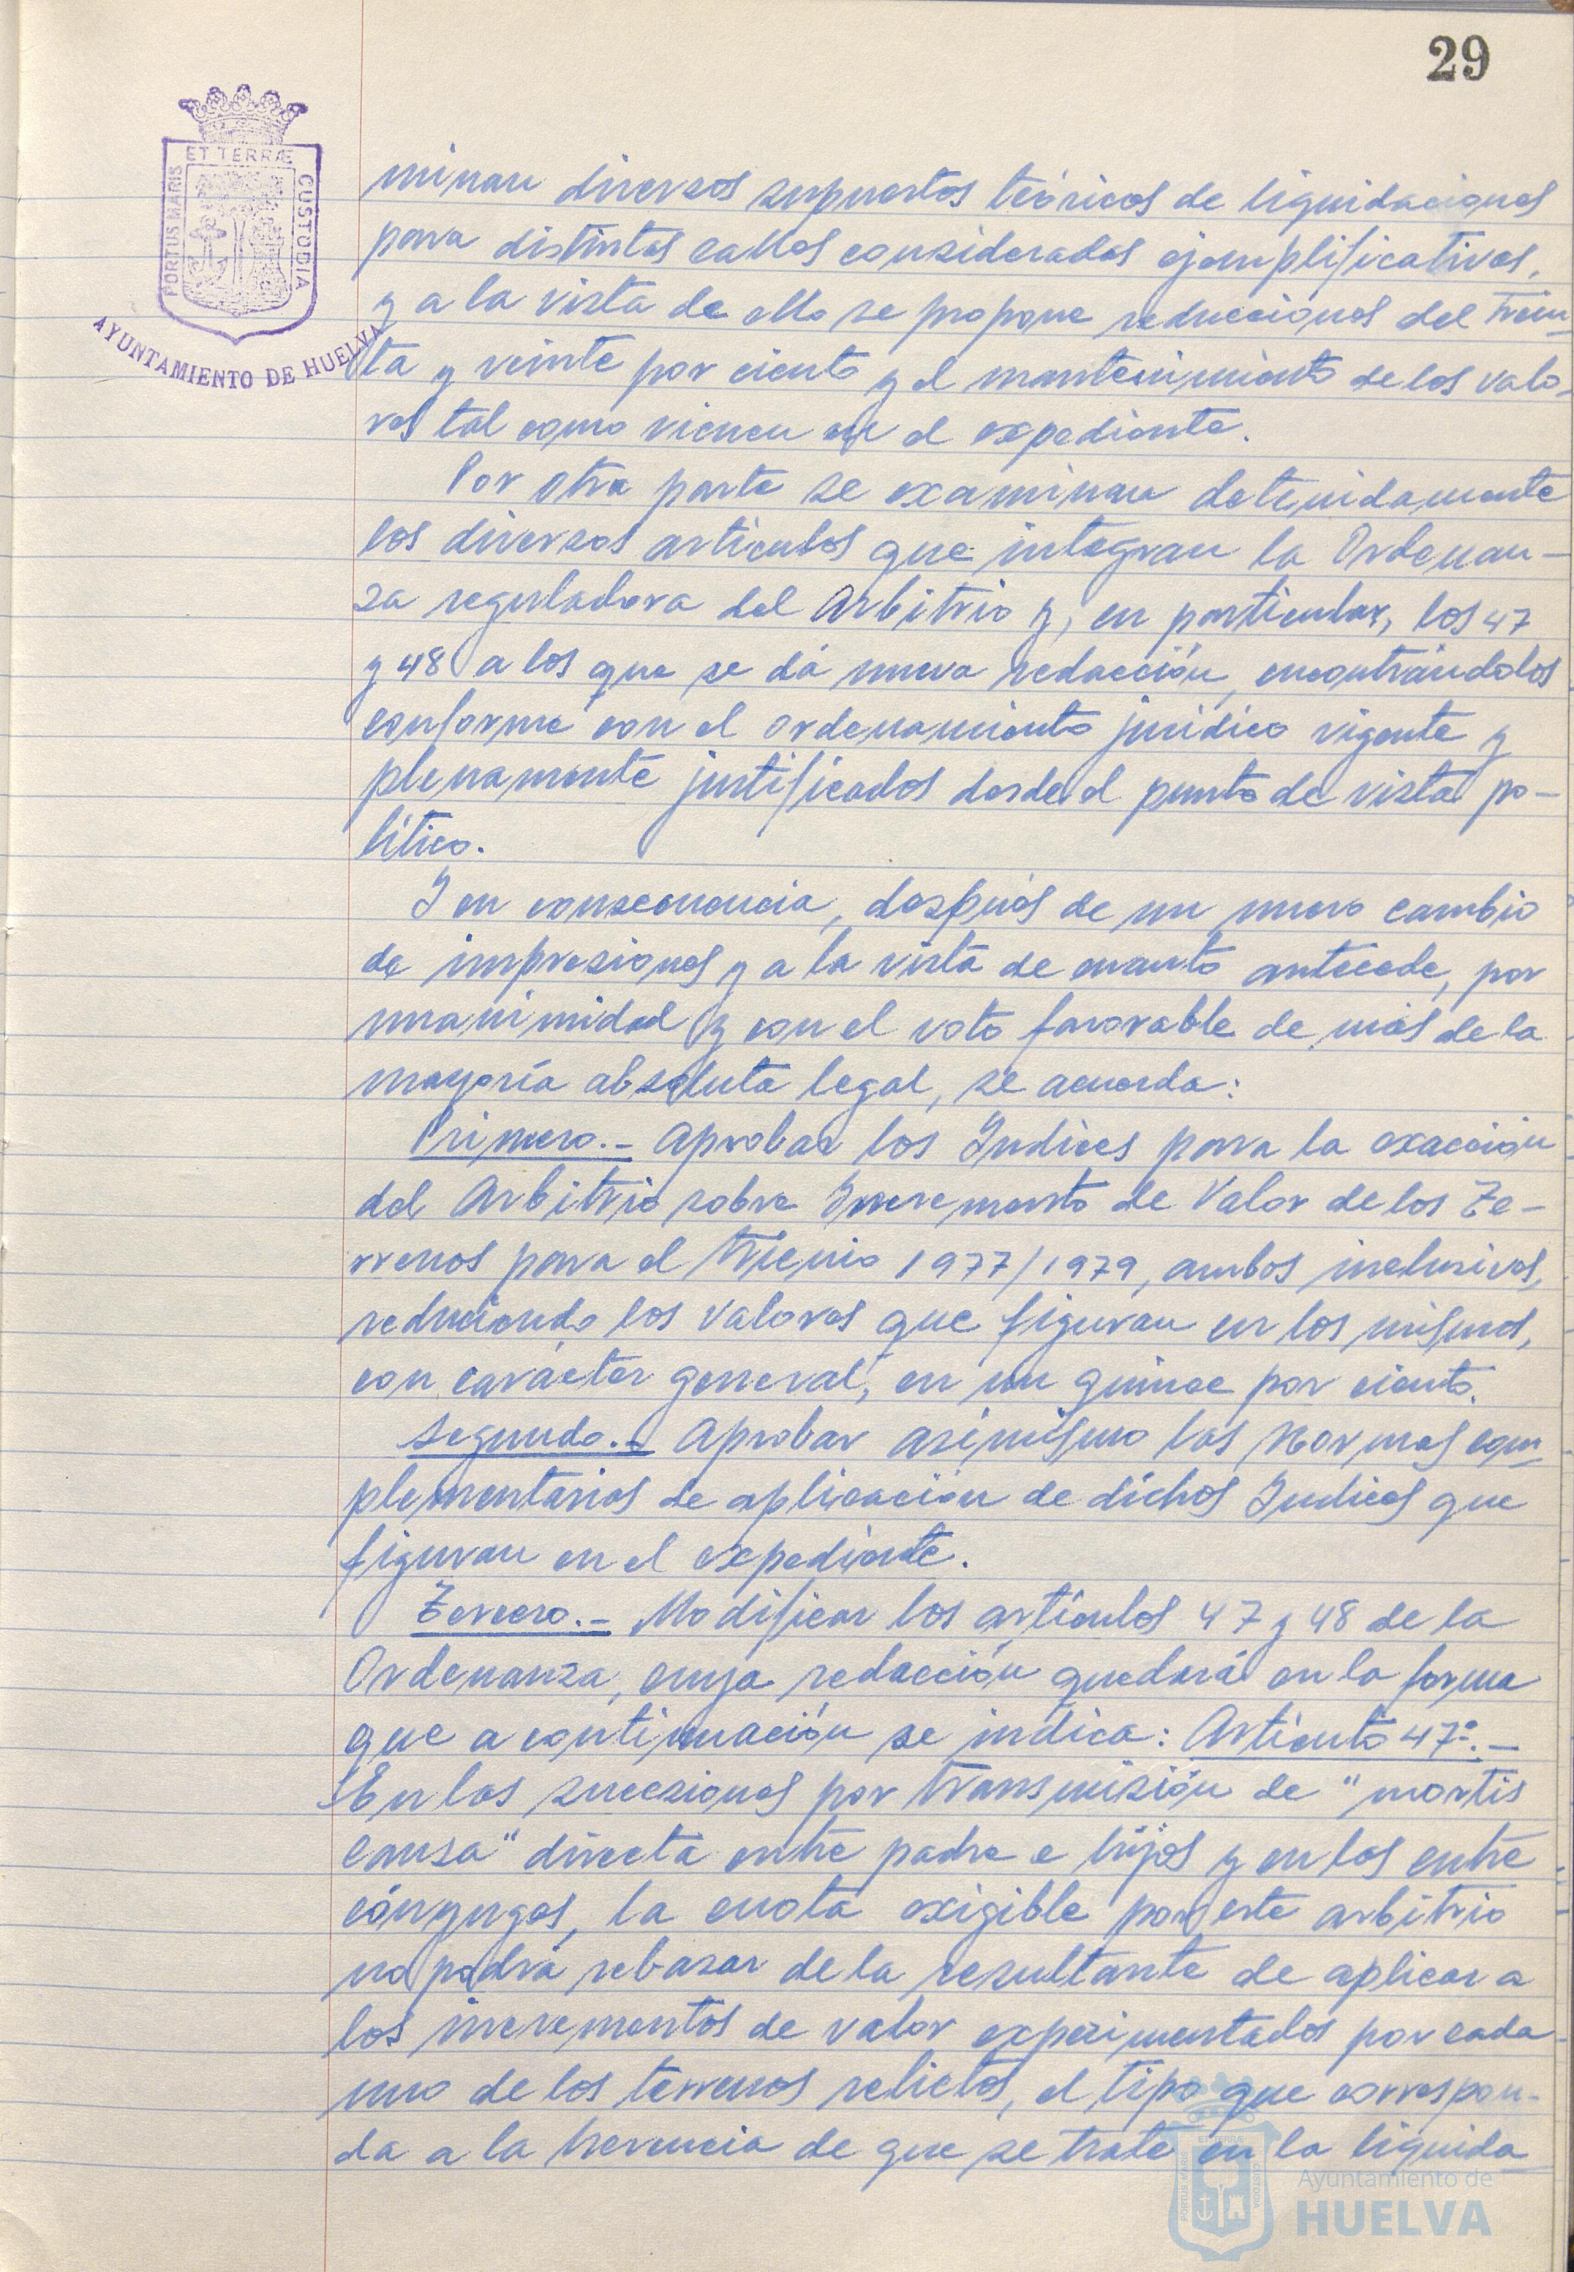 29
ET TERRÆ
PORTUS MARIS
CUSTODIA
AYUNTAMIENTO DE HUELVA
minan diversos supuestos teóricos de liquidaciones
para distintas calles consideradas ejemplificativas,
y a la vista de ello se propone reducciones del trein-
ta y veinte por ciento y el mantenimiento de los valo-
res tal como vienen en el expediente.
Por otra parte se examinan detenidamente
los diversos artículos que integran la Ordenan-
za reguladora del Arbitrio y, en particular, los 47
y 48 a los que se dá nueva redacción, encontrándolos
conforme con el ordenamiento jurídico vigente y
plenamente justificados desde el punto de vista po-
lítico.
Y en consecuencia, después de un nuevo cambio
de impresiones y a la vista de cuanto antecede, por
unanimidad y con el voto favorable de más de la
mayoría absoluta legal, se acuerda:
Primero.- Aprobar los Indices para la exacción
del Arbitrio sobre Incremento de Valor de los Te-
rrenos para el trienio 1977/1979, ambos inclusives,
reduciendo los valores que figuran en los mismos,
con carácter general, en un quince por ciento.
Segundo.- Aprobar asimismo las Normas com-
plementarias de aplicación de dichos Indices que
figuran en el expediente.
Tercero.- Modificar los artículos 47 y 48 de la
Ordenanza, cuya redacción quedará en la forma
que a continuación se indica: Artículo 47º.-
En las sucesiones por transmisión de "mortis
causa" directa entre padre e hijos y en las entre
cónyuges, la cuota exigible por este arbitrio
no podrá rebasar de la resultante de aplicar a
los incrementos de valor experimentados por cada
uno de los terrenos relictos, el tipo que correspon-
da a la herencia de que se trate en la liquida
Ayuntamiento de
HUELVA